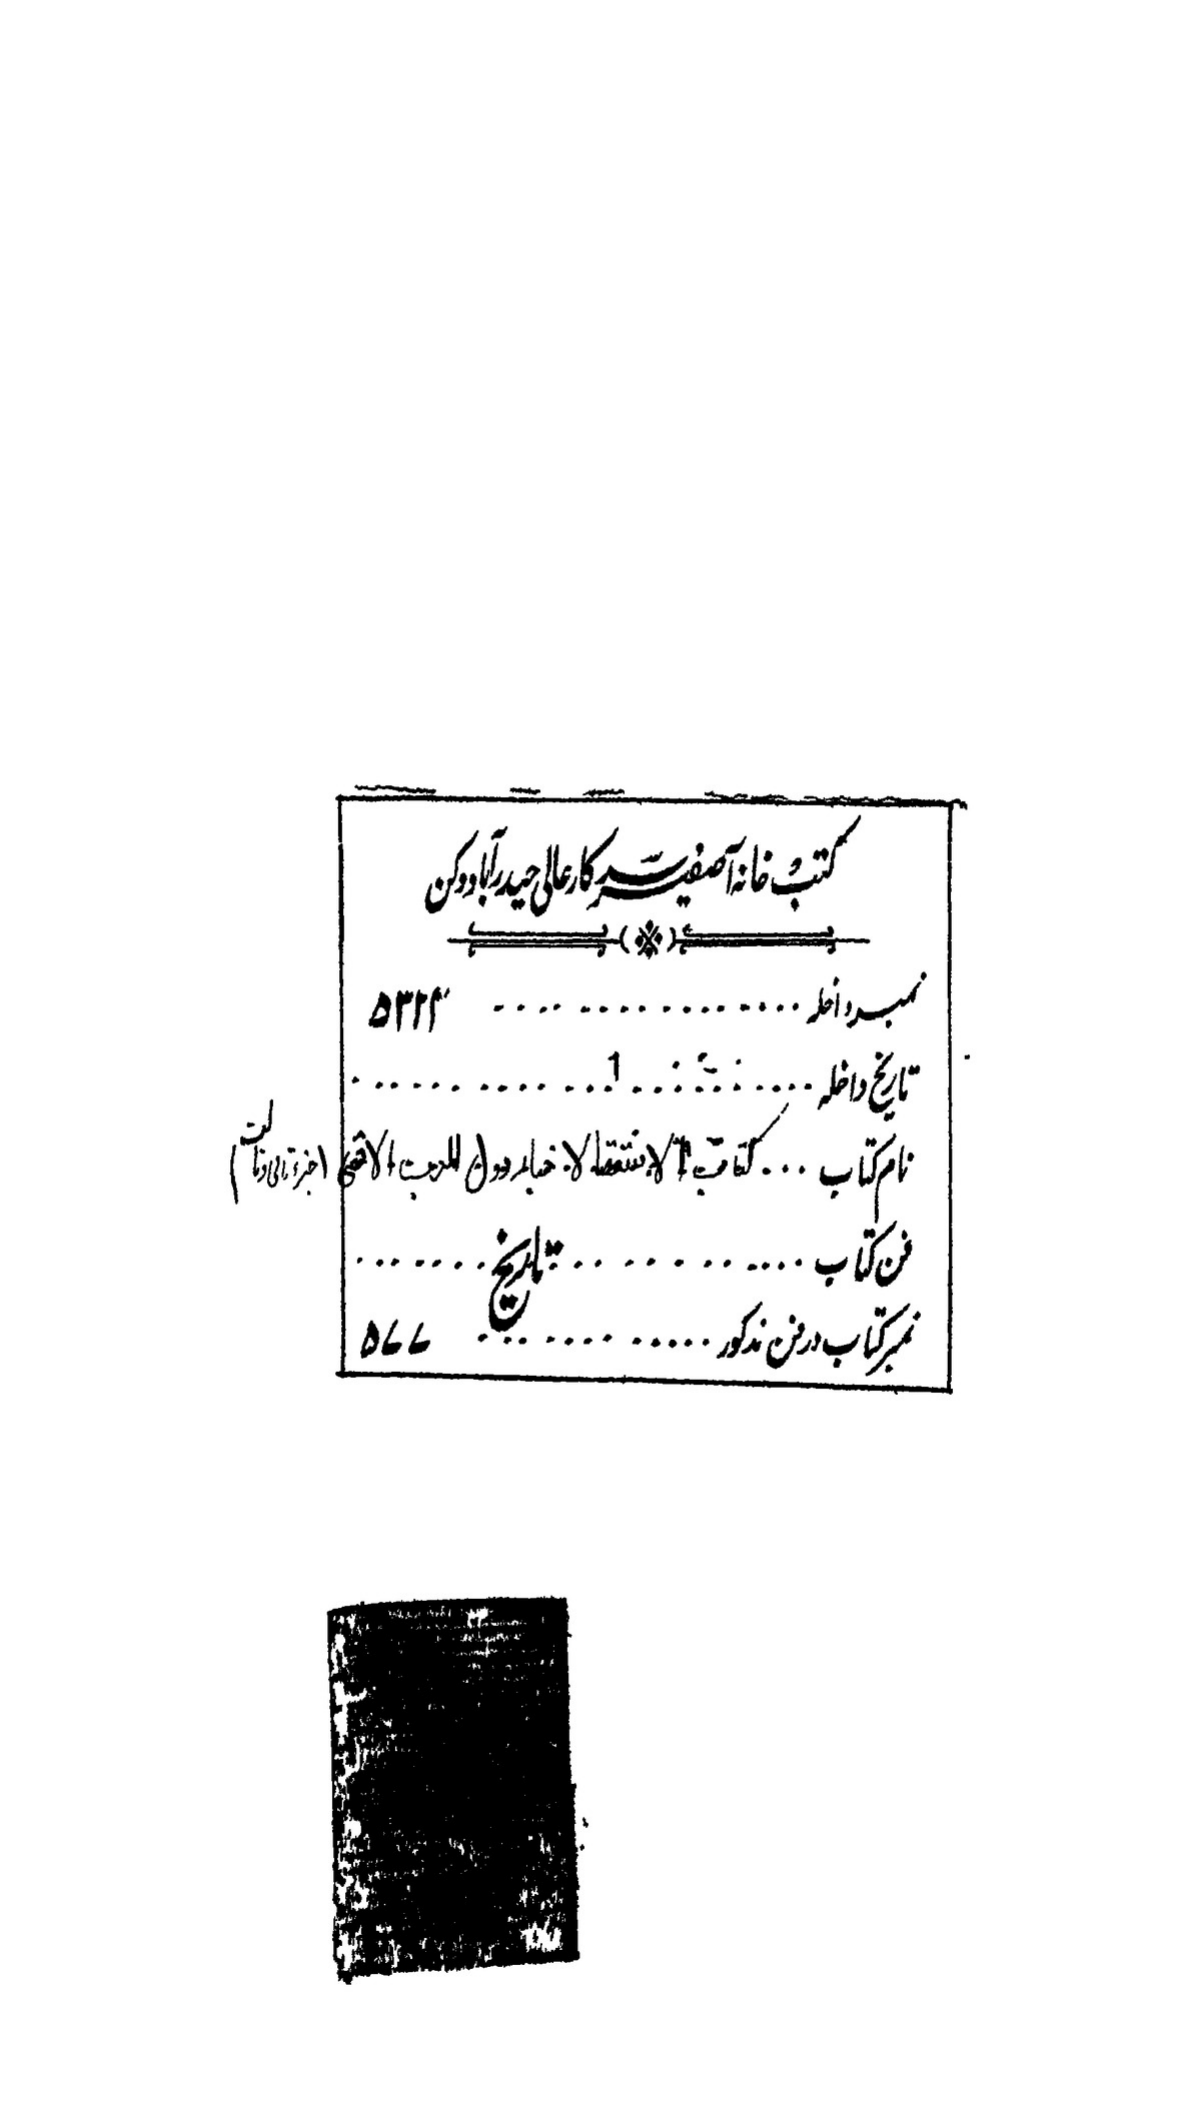 کتب خانہ آصفیہ سرکار عالی حیدرآباد دکن
نمبر داخلہ ۵۳۲۴
تاریخ داخلہ 1
نام کتاب کتاب الاستقصا لاخبار دول المغرب الاقصی (جزء ثانی و ثالث)
فن کتاب تاریخ
نمبر کتاب در فن مذکور ۵۷۷